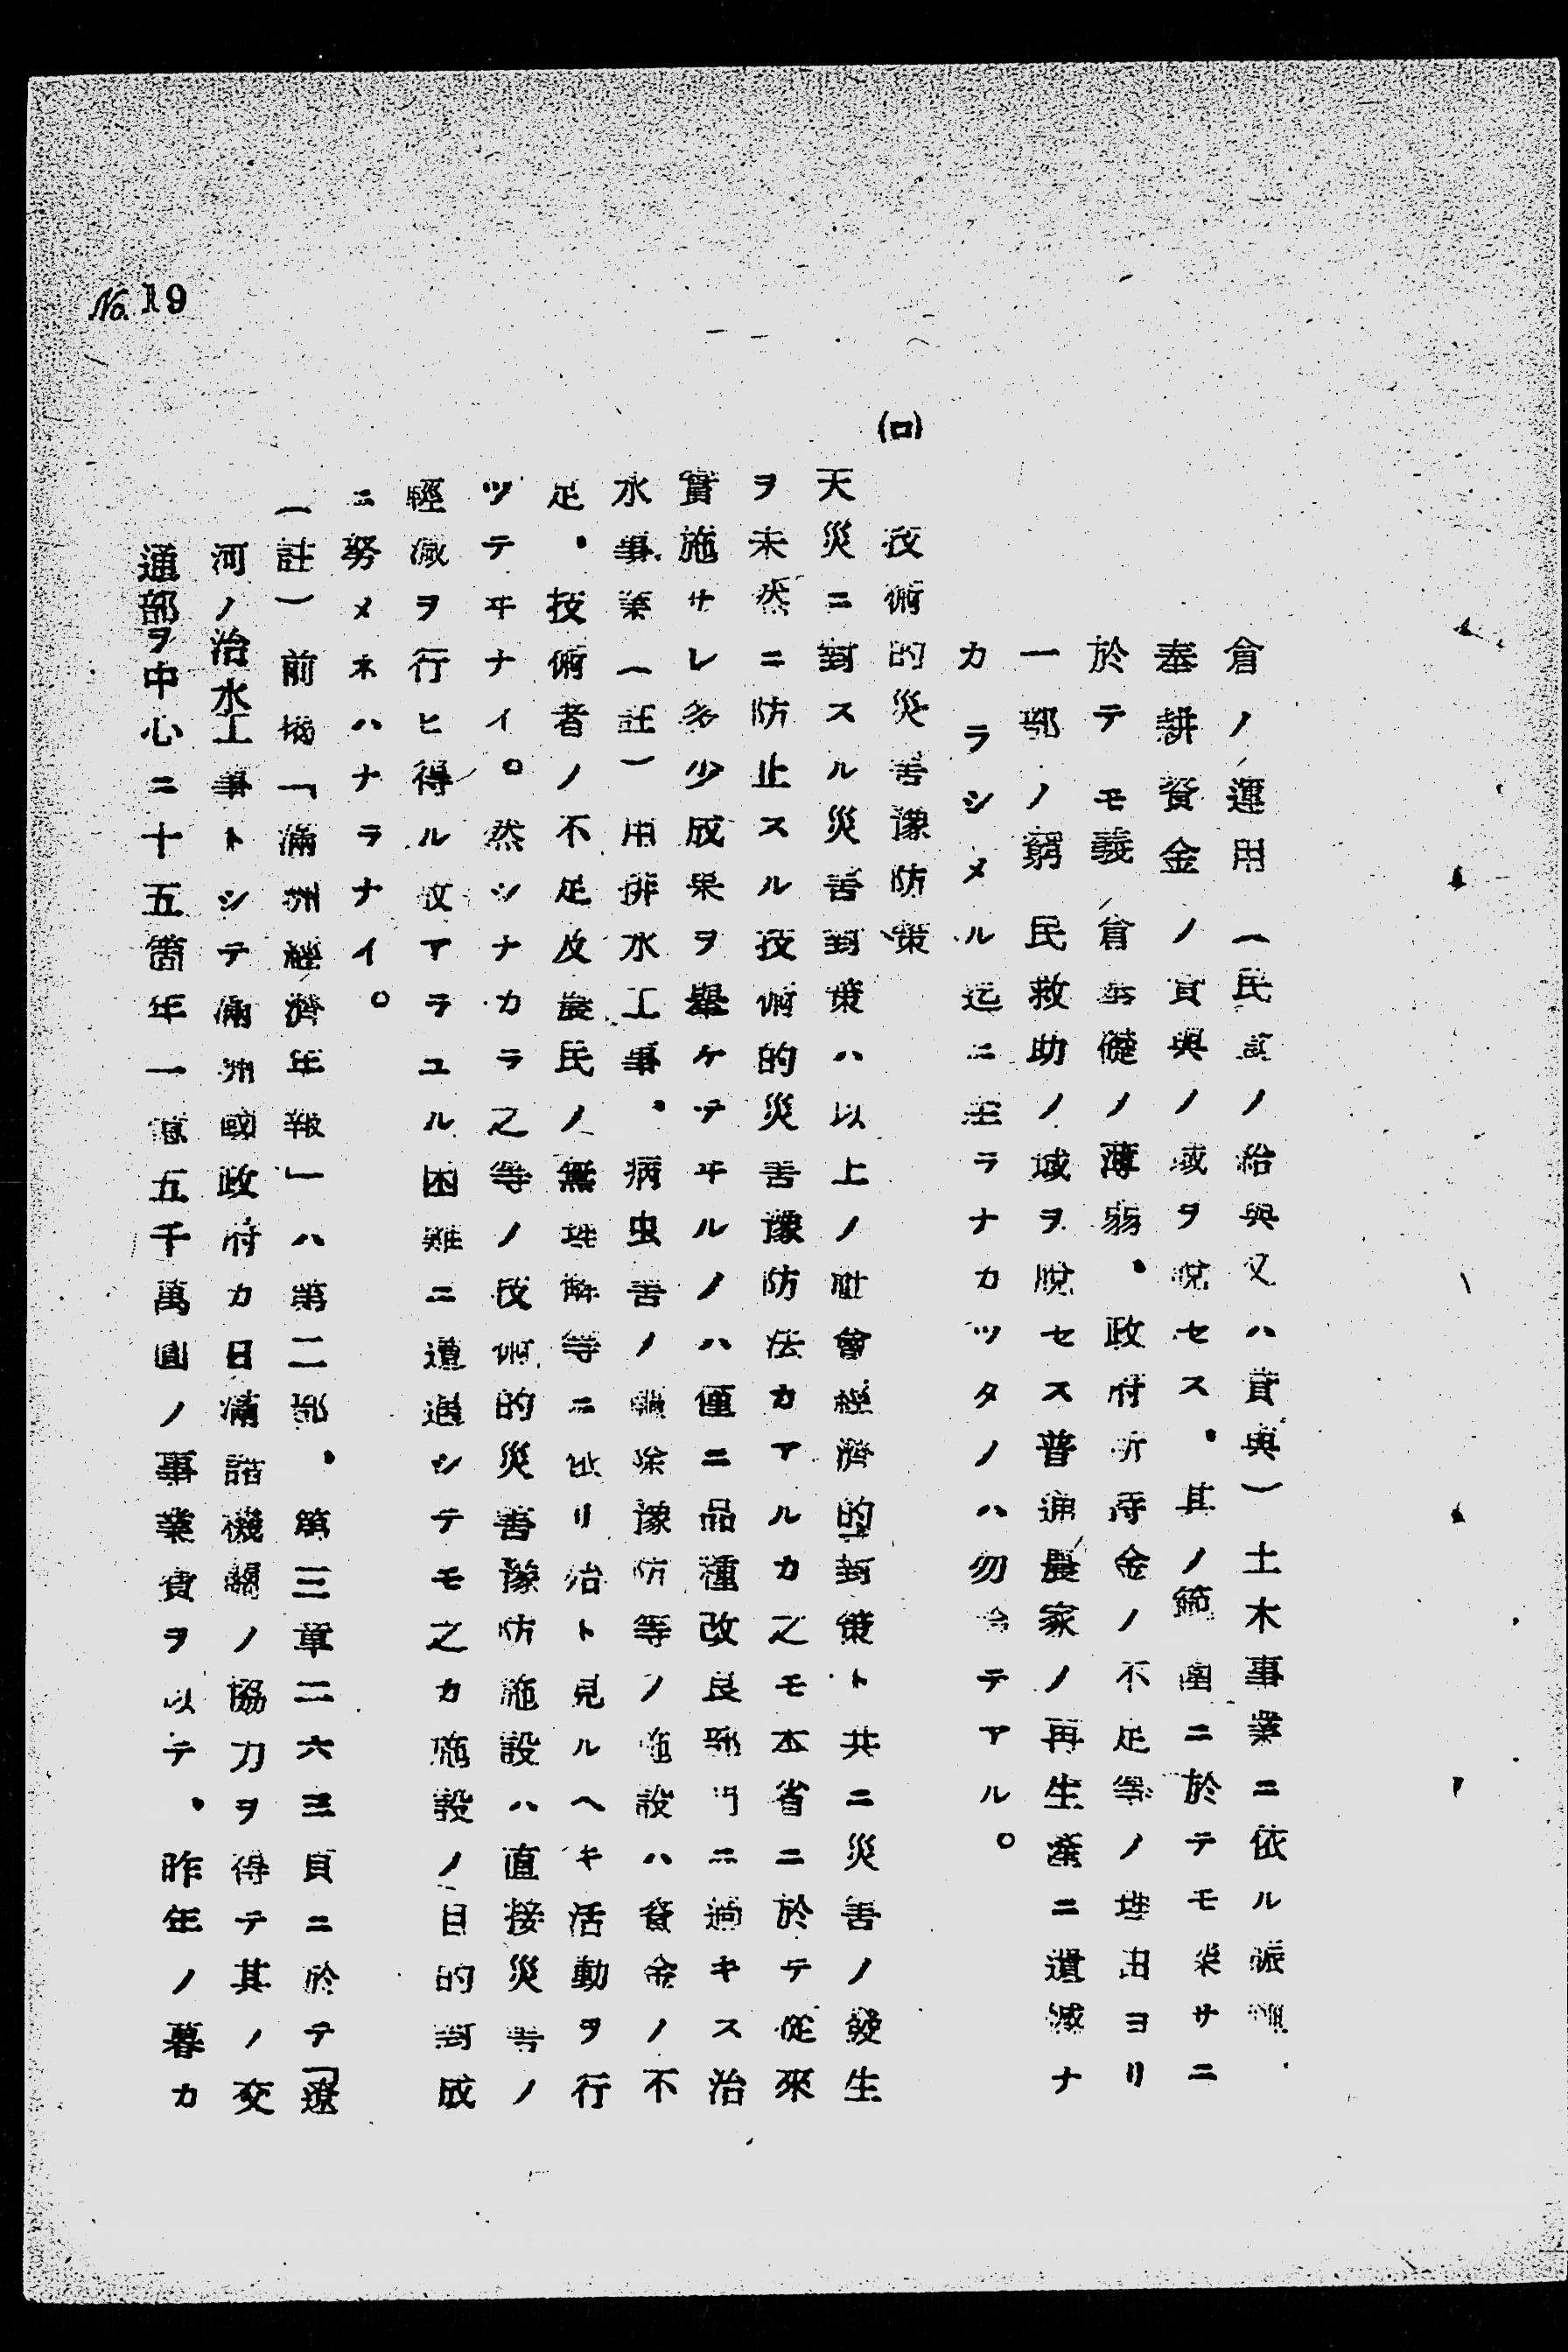 倉ノ運用(民食ノ給與又ハ貸與)土木事業ニ依ル賑恤
春耕資金ノ貸與ノ域ヲ脫セス、其ノ範圍ニ於テモ柴サニ
於テモ義倉基礎ノ薄弱、政府所得金ノ不足等ノ理由ヨリ
一部ノ窮民救助ノ域ヲ脫セス普通農家ノ再生產ニ遺減ナ
カラシメル迄ニ至ラナカツタノハ勿論テアル。
(ロ)技術的災害豫防策
天災ニ對スル災害對策ハ以上ノ社會經濟的對策ト共ニ災害ノ發生
ヲ未然ニ防止スル技術的災害豫防法カアルカ之モ本省ニ於テ從來
實施サレ多少成果ヲ擧ケテヰルノハ僅ニ品種改良部門ニ過キス治
水事業(註)用排水工事、病虫害ノ驅除豫防等ノ施設ハ資金ノ不
足、技術者ノ不足及農民ノ無理解等ニ依リ治ト見ルヘキ活動ヲ行
ツテヰナイ。然シナカラ之等ノ技術的災害豫防施設ハ直接災害ノ
輕減ヲ行ヒ得ル故アラユル困難ニ遭遇シテモ之カ施設ノ目的對成
ニ努メネハナラナイ。
(註)前揭「滿洲經濟年報」ハ第二部、第三章二六三頁ニ於テ「遼
河ノ治水工事トシテ滿洲國政府カ日滿諸機關ノ協力ヲ得テ其ノ交
通部ヲ中心ニ十五箇年一億五千萬圓ノ事業費ヲ以テ、昨年ノ暮カ
No.19